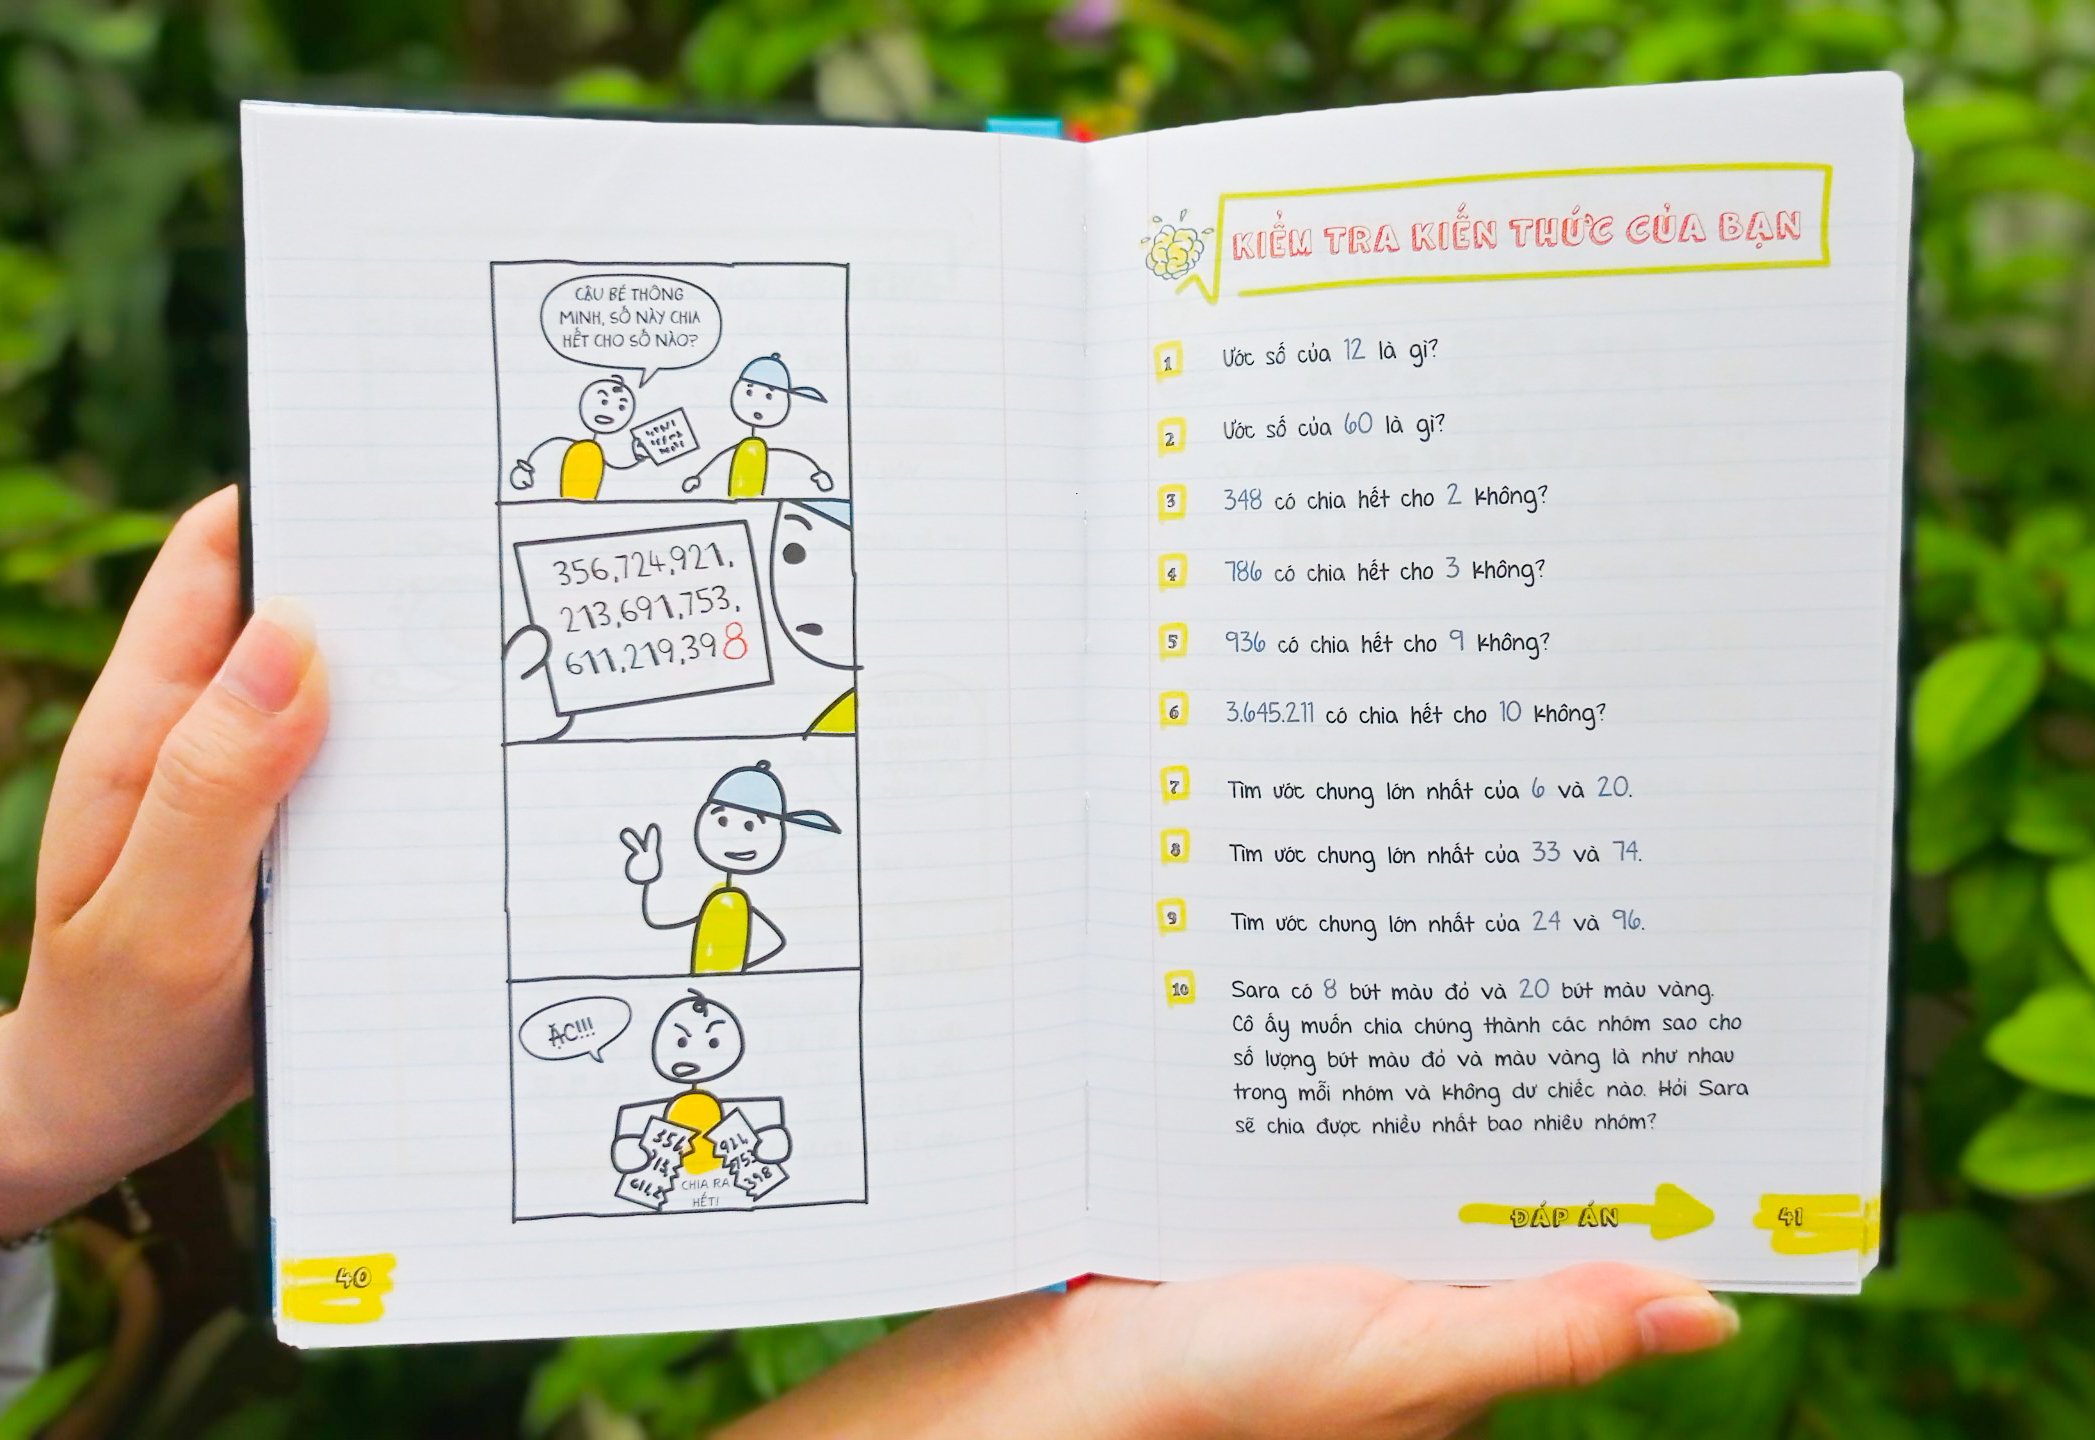 CẬU BÉ THÔNG
MINH, SỐ NÀY CHIA
HẾT CHO SỐ NÀO?
356,724,921,
213,691,753,
611,219,398
ẶC!!!
356,
713,
611,2
921,
753
398
CHIA RA
HẾT!
40
KIỂM TRA KIẾN THỨC CỦA BẠN
1 Ước số của 12 là gì?
2 Ước số của 60 là gì?
3 348 có chia hết cho 2 không?
4 786 có chia hết cho 3 không?
5 936 có chia hết cho 9 không?
6 3.645.211 có chia hết cho 10 không?
7 Tìm ước chung lớn nhất của 6 và 20.
8 Tìm ước chung lớn nhất của 33 và 74.
9 Tìm ước chung lớn nhất của 24 và 96.
10 Sara có 8 bút màu đỏ và 20 bút màu vàng.
Cô ấy muốn chia chúng thành các nhóm sao cho
số lượng bút màu đỏ và màu vàng là như nhau
trong mỗi nhóm và không dư chiếc nào. Hỏi Sara
sẽ chia được nhiều nhất bao nhiêu nhóm?
ĐÁP ÁN
41